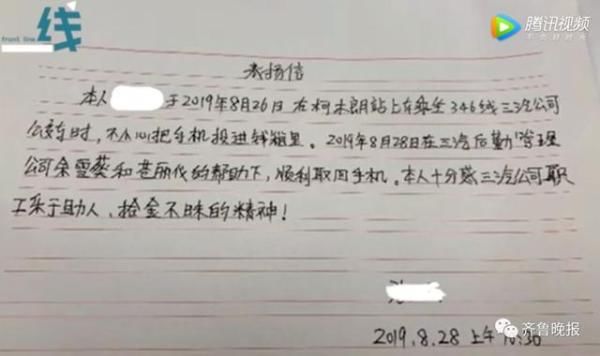 线
front line
腾讯视频
表扬信
本人 于2019年8月26日在柯木朗站上车乘坐346线三汽公司
公交车时，不小心把手机投进钱箱里。2019年8月28日在三汽后勤管理
公司余雪葵和芒丽代的帮助下，顺利取回手机。本人十分感三汽公司职
工乐于助人、拾金不昧的精神！
2019.8.28 上午10:30
齐鲁晚报